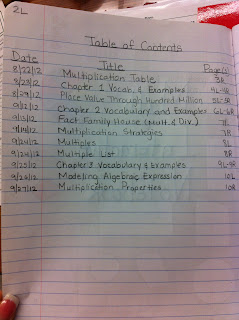 2L
Table of Contents
Date Title Page(s)
8/22/12 Multiplication Table 3R
8/23/12 Chapter 1 Vocab. & Examples 4L-4R
8/29/12 Place Value Through Hundred Million 5L-5R
9/12/12 Chapter 2 Vocabulary and Examples 6L-6R
9/13/12 Fact Family House (Mult. & Div.) 7L
9/19/12 Multiplication Strategies 7R
9/24/12 Multiples 8L
9/24/12 Multiple List 8R
9/25/12 Chapter 3 Vocabulary & Examples 9L-9R
9/26/12 Modeling Algebraic Expression 10L
9/27/12 Multiplication Properties 10R